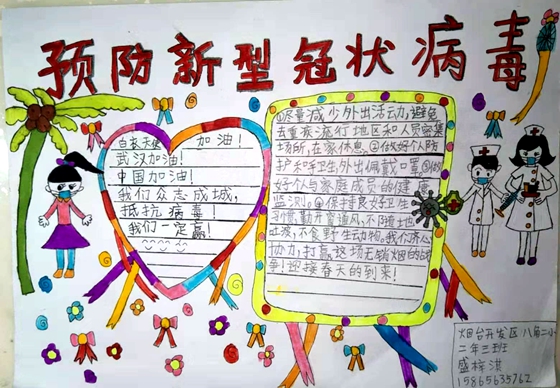 预防新型冠状病毒
白衣天使 加油!
武汉加油!
中国加油!
我们众志成城,
抵抗病毒!
我们一定赢!
①尽量减少外出活动,避免
去重疾流行地区和人员密集
场所,在家休息。②做好个人防
护和手卫生,外出佩戴口罩。③做
好个人与家庭成员的健康
监测。④保持良好卫生
习惯,勤开窗通风,不随地
吐痰,不食野生动物。我们齐心
协力,打赢这场无硝烟的战
争!迎接春天的到来!
烟台开发区八角二小
二年三班
盛梓淇
15865635762